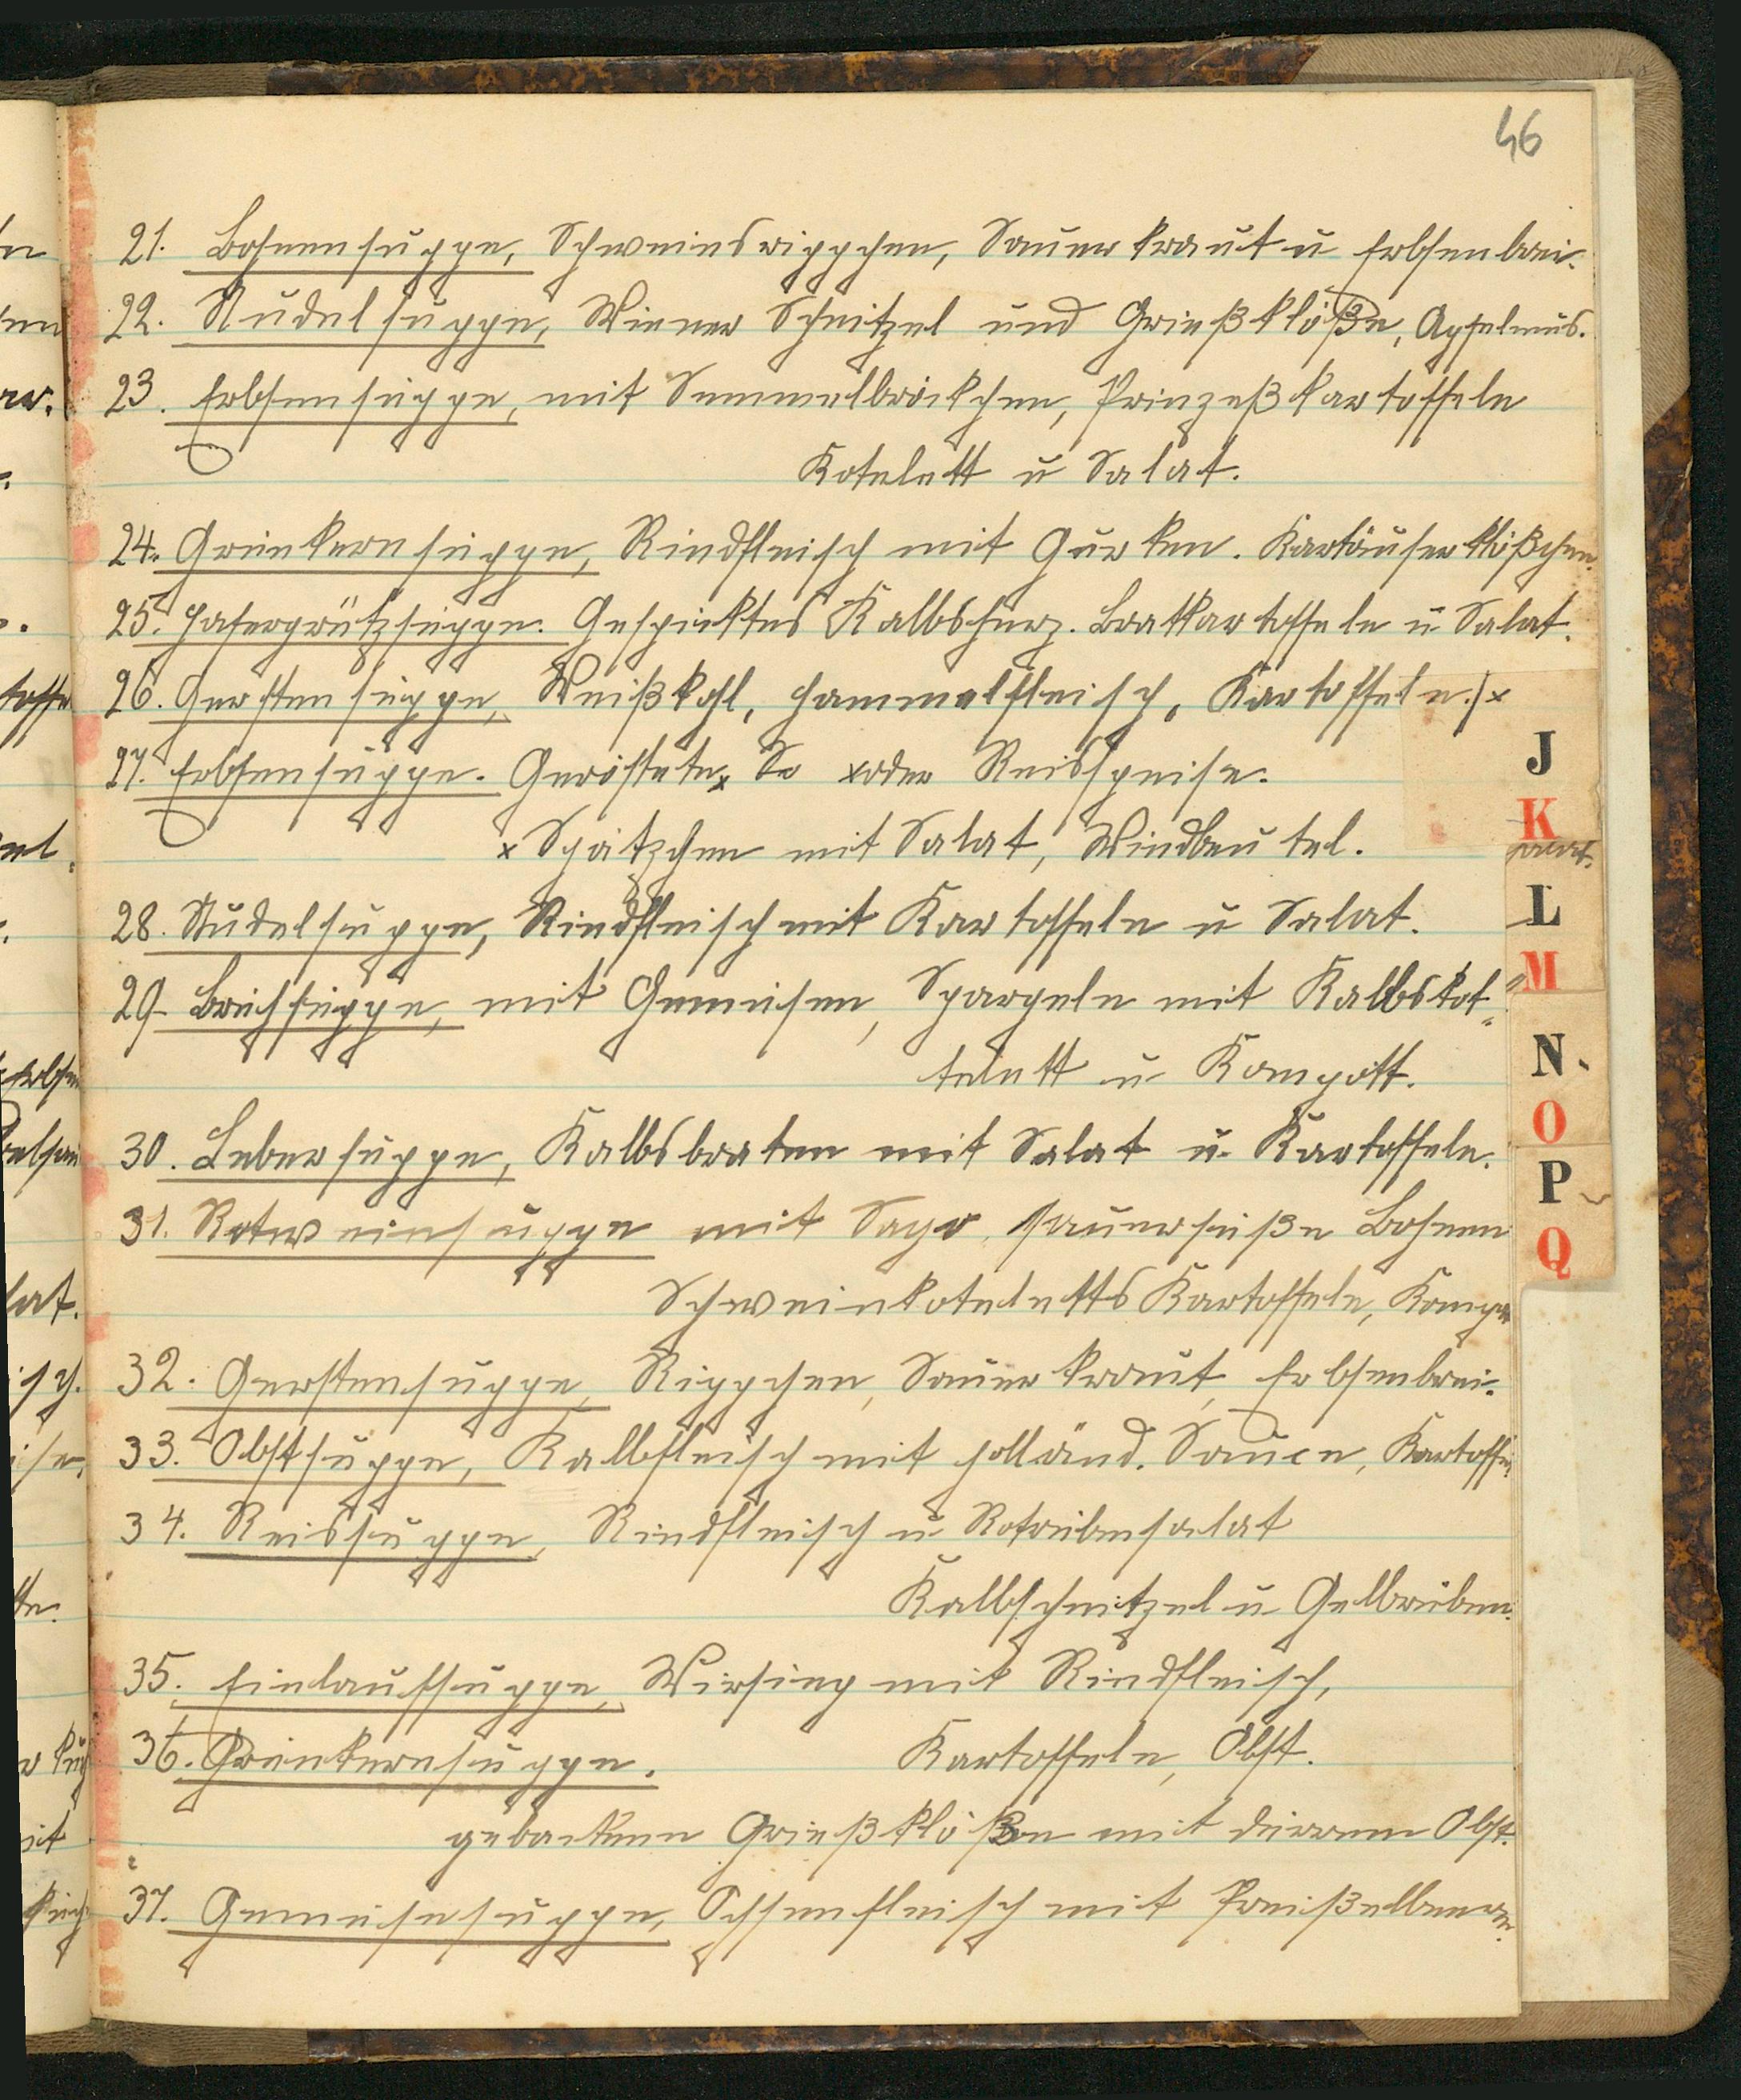 46
21. Bohnensuppe, Schweinsrippchen, Sauerkraut u Erbsenbrei.
22. Nudelsuppe, Wiener Schnitzel und Grießklöße, Apfelmus.
23. Erbsensuppe, mit Semmelbröckchen, Prinzeßkartoffeln
Kotelett u Salat.
24. Grünkernsuppe, Rindfleisch mit Gurken. Kartäuserklößchen.
25. Hafergrützsuppe. Gespicktes Kalbsherz. Bratkartoffeln u Salat.
26. Gerstensuppe, Weißkohl, Hammelfleisch, Kartoffeln.)x
27. Erbsensuppe. Geröstete x So x oder Reisspeise.
x Spätzchen mit Salat, Windbeutel.
28. Nudelsuppe, Rindfleisch mit Kartoffeln u Salat.
29. Brühsuppe, mit Gemüsen, Spargeln mit Kalbskot„
telett u Kompott.
30. Lebersuppe, Kalbsbraten mit Salat u. Kartoffeln.
31. Rotweinsuppe mit Sago, sauersüße Bohnen
Schweinkoteletts Kartoffeln, Komp
32. Gerstensuppe, Rippchen, Sauerkraut, Erbsenbrei.
33. Obstsuppe, Kalbfleisch mit holländ. Sauce, Kartoffeln
34. Reissuppe, Rindfleisch u Rotrübensalat
Kalbschnitzel u Gelbrüben.
35. Einlaufsuppe, Wirsing mit Rindfleisch,
36. Grünkernsuppe. Kartoffeln, Obst.
gebackene Grießklößen mit dürrem Obst.
37. Gemüsesuppe, Ochsenfleisch mit Preißelbeeren.
J
K
L
M
N
O
P
Q